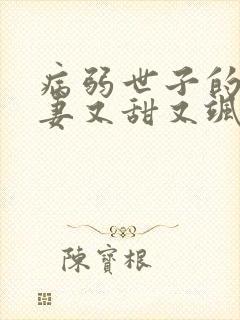 病弱世子的
妻又甜又飒
陳寶根